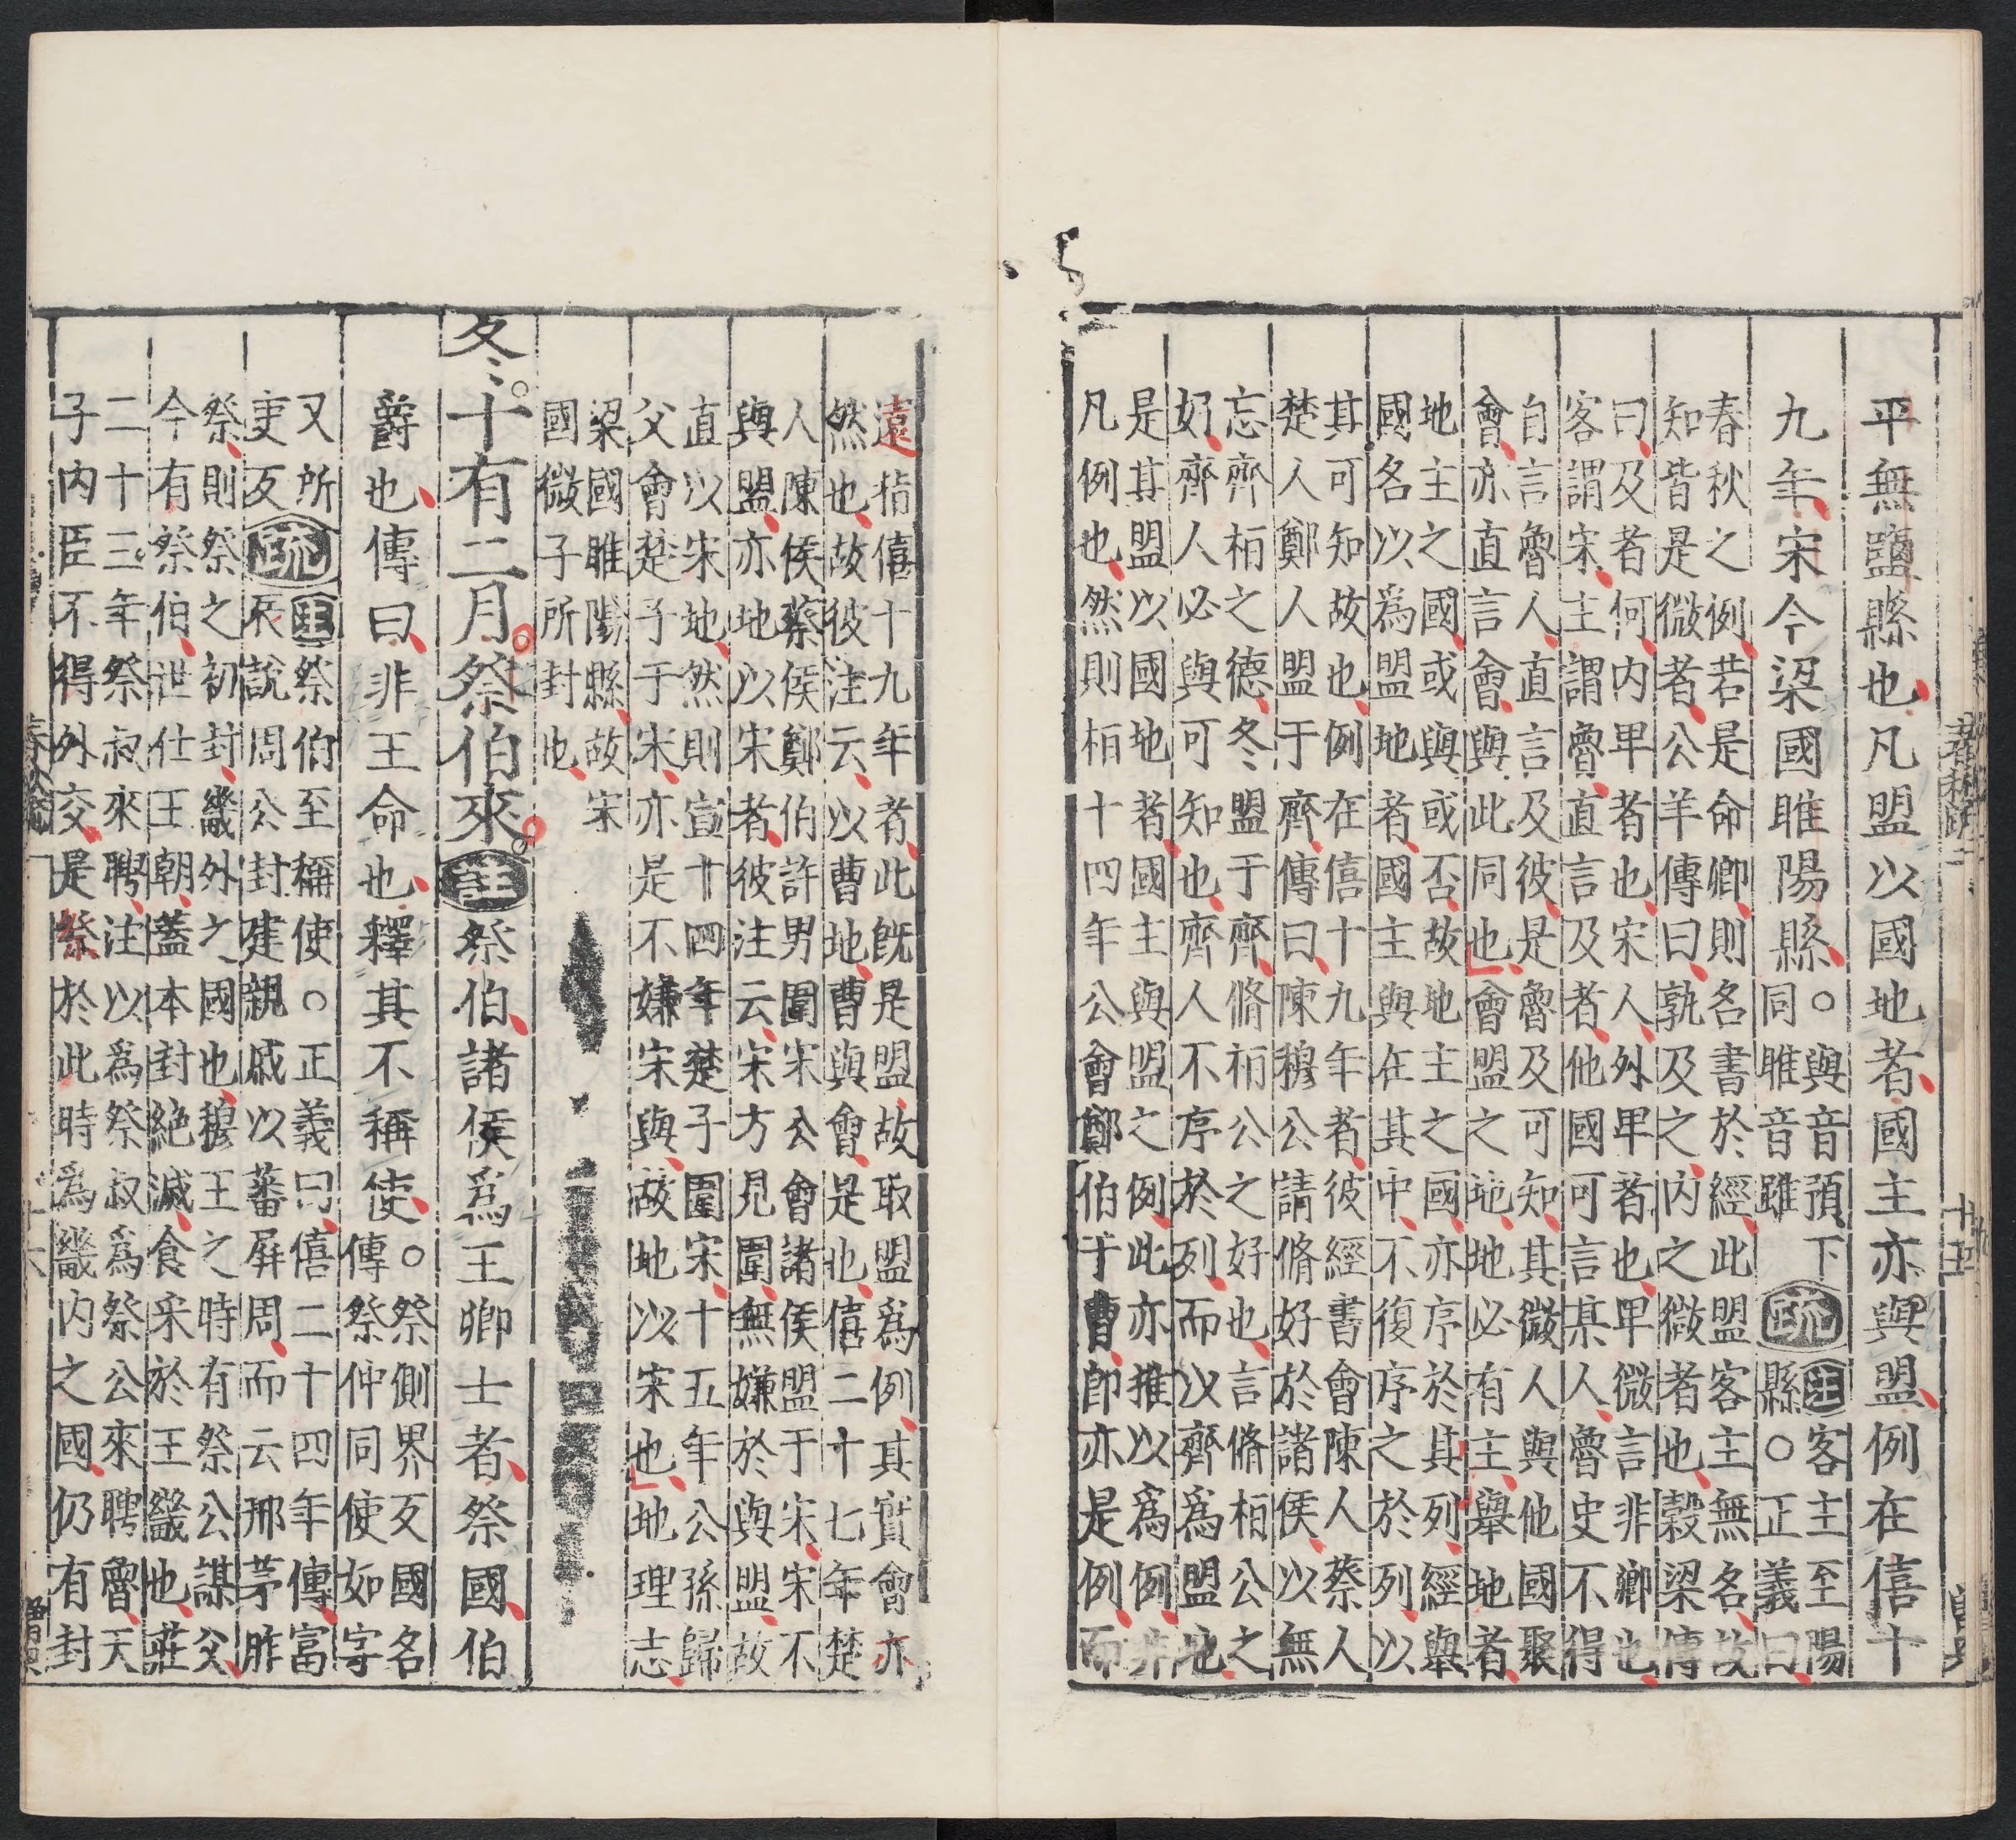 平無鹽縣也凡盟以國地者國主亦與盟例在僖十
九年宋今梁國睢陽縣○與音預下
同睢音雖
疏
注客主至陽
縣○正義曰
春秋之例若是命卿則名書於經此盟客主無名故
知皆是微者公羊傳曰孰及之內之微者也穀梁傳
曰及者何內卑者也宋人外卑者也卑微言非卿也
客謂宋主謂魯直言及者他國可言某人魯史不得
自言魯人直言及彼是魯及可知其微人與他國聚
會亦直言會與此同也會盟之地地必有主舉地者
地主之國或與或否故地主之國亦序於其列經舉
國名以爲盟地者國主與在其中不復序之於列以
其可知故也例在僖十九年者彼經書會陳人蔡人
楚人鄭人盟于齊傳曰陳穆公請脩好於諸侯以無
忘齊桓之德冬盟于齊脩桓公之好也言脩桓公之
好齊人必與可知也齊人不序於列而以齊爲盟地
是其盟以國地者國主與盟之例此亦推以爲例非
凡例也然則桓十四年公會鄭伯于曹即亦是例而
遠指僖十九年者此既是盟故取盟爲例其實會亦
然也故彼注云以曹地曹與會是也僖二十七年楚
人陳侯蔡侯鄭伯許男圍宋公會諸侯盟于宋宋不
與盟亦地以宋者彼注云宋方見圍無嫌於與盟故
直以宋地然則宣十四年楚子圍宋十五年公孫歸
父會楚子于宋亦是不嫌宋與故地以宋也地理志
梁國睢陽縣故宋
國微子所封也
冬十有二月祭伯來注祭伯諸侯爲王卿士者祭國伯
爵也傳曰非王命也釋其不稱使○祭側界反國名
傳祭仲同使如字
又所
吏反
疏
注祭伯至稱使○正義曰僖二十四年傳富
辰說周公封建親戚以蕃屏周而云邢茅胙
祭則祭之初封畿外之國也穆王之時有祭公謀父
今有祭伯世仕王朝蓋本封絶滅食采於王畿也莊
二十三年祭叔來聘注以爲祭叔爲祭公來聘魯天
子內臣不得外交是祭於此時爲畿內之國仍有封